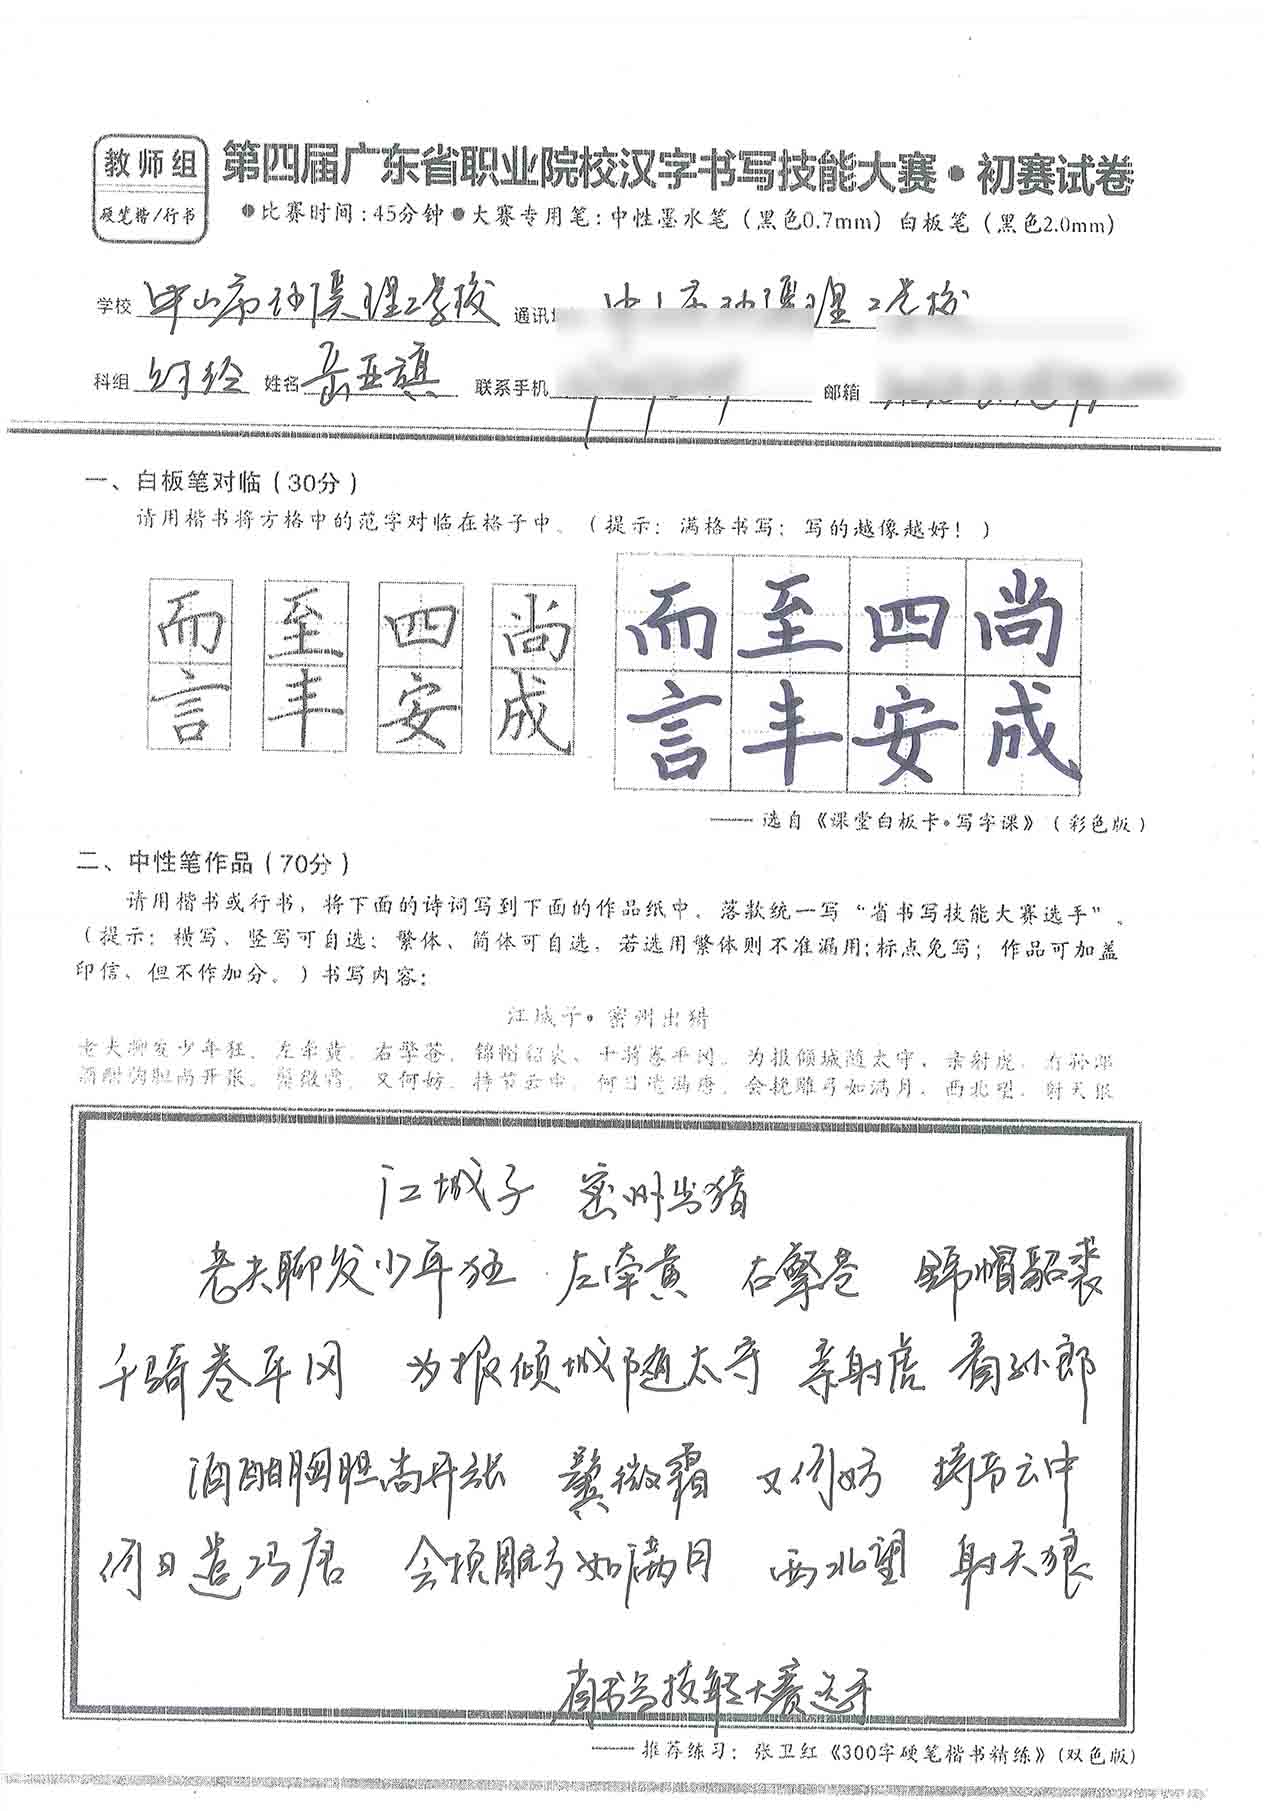 教师组
硬笔楷/行书
第四届广东省职业院校汉字书写技能大赛·初赛试卷
●比赛时间:45分钟●大赛专用笔:中性墨水笔(黑色0.7mm)白板笔(黑色2.0mm)
学校 中山市沙溪理工学校 通讯 中山市沙溪理工学校
科组 财经 姓名 岳亚旗 联系手机 邮箱
一、白板笔对临(30分)
请用楷书将方格中的范字对临在格子中。(提示:满格书写;写的越像越好!)
而 至 四 尚 而 至 四 尚
言 丰 安 成 言 丰 安 成
——选自《课堂白板卡·写字课》(彩色版)
二、中性笔作品(70分)
请用楷书或行书,将下面的诗词写到下面的作品纸中。落款统一写“省书写技能大赛选手”。
(提示:横写、竖写可自选;繁体、简体可自选,若选用繁体则不准漏用;标点免写;作品可加盖
印信、但不作加分。)书写内容:
江城子·密州出猎
老夫聊发少年狂,左牵黄,右擎苍,锦帽貂裘,千骑卷平冈。为报倾城随太守,亲射虎,看孙郎
酒酣胸胆尚开张。鬓微霜,又何妨,持节云中,何日遣冯唐。会挽雕弓如满月,西北望,射天狼
江城子 密州出猎
老夫聊发少年狂 左牵黄 右擎苍 锦帽貂裘
千骑卷平冈 为报倾城随太守 亲射虎 看孙郎
酒酣胸胆尚开张 鬓微霜 又何妨 持节云中
何日遣冯唐 会挽雕弓如满月 西北望 射天狼
省书写技能大赛选手
——推荐练习:张卫红《300字硬笔楷书精练》(双色版)